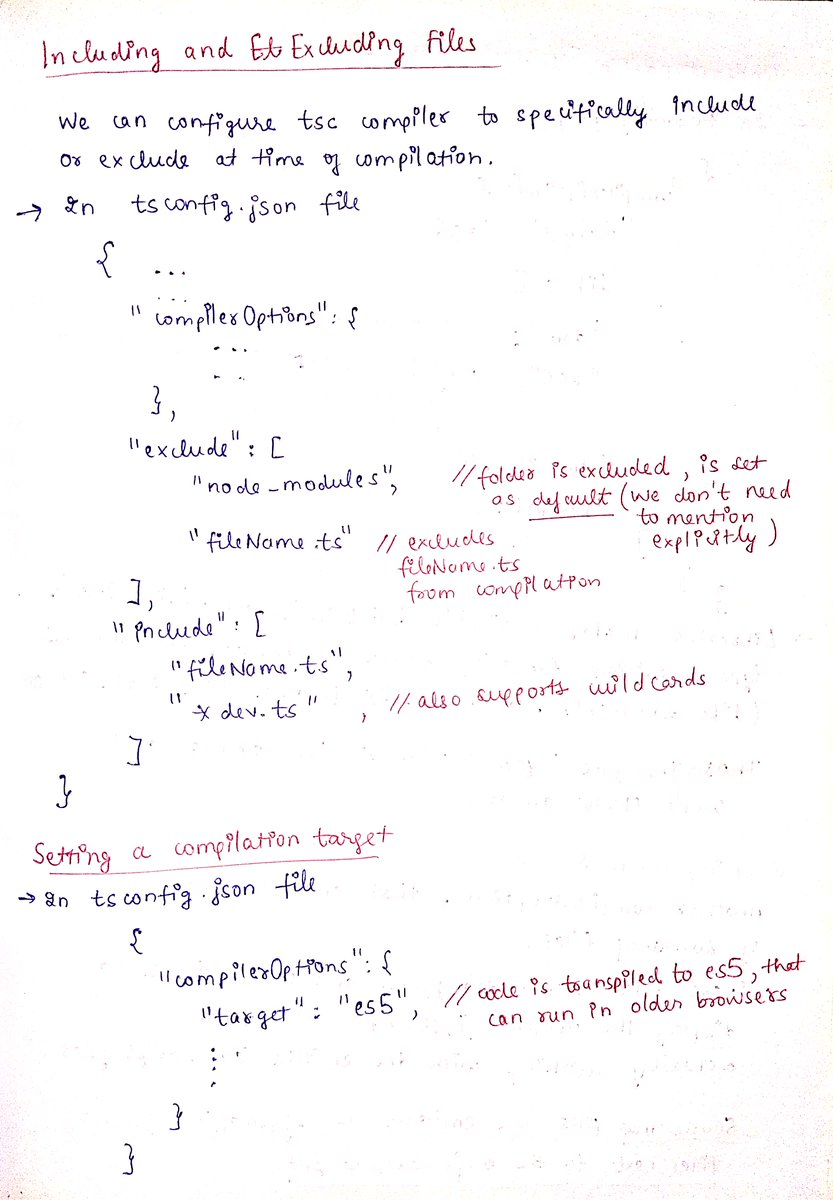 Including and Et Excluding files
We can configure tsc compiler to specifically include
or exclude at time of compilation.
→ In tsconfig.json file
{ ...
...
"compilerOptions": {
...
...
},
"exclude": [
"node_modules", // folder is excluded, is set
as default (we don't need
to mention
explicitly)
"fileName.ts" // excludes
fileName.ts
from compilation
],
"include": [
"fileName.ts",
"* dev.ts" , // also supports wildcards
]
}
Setting a compilation target
→ In tsconfig.json file
{
"compilerOptions": {
"target": "es5", // code is transpiled to es5, that
can run in older browsers
}
}